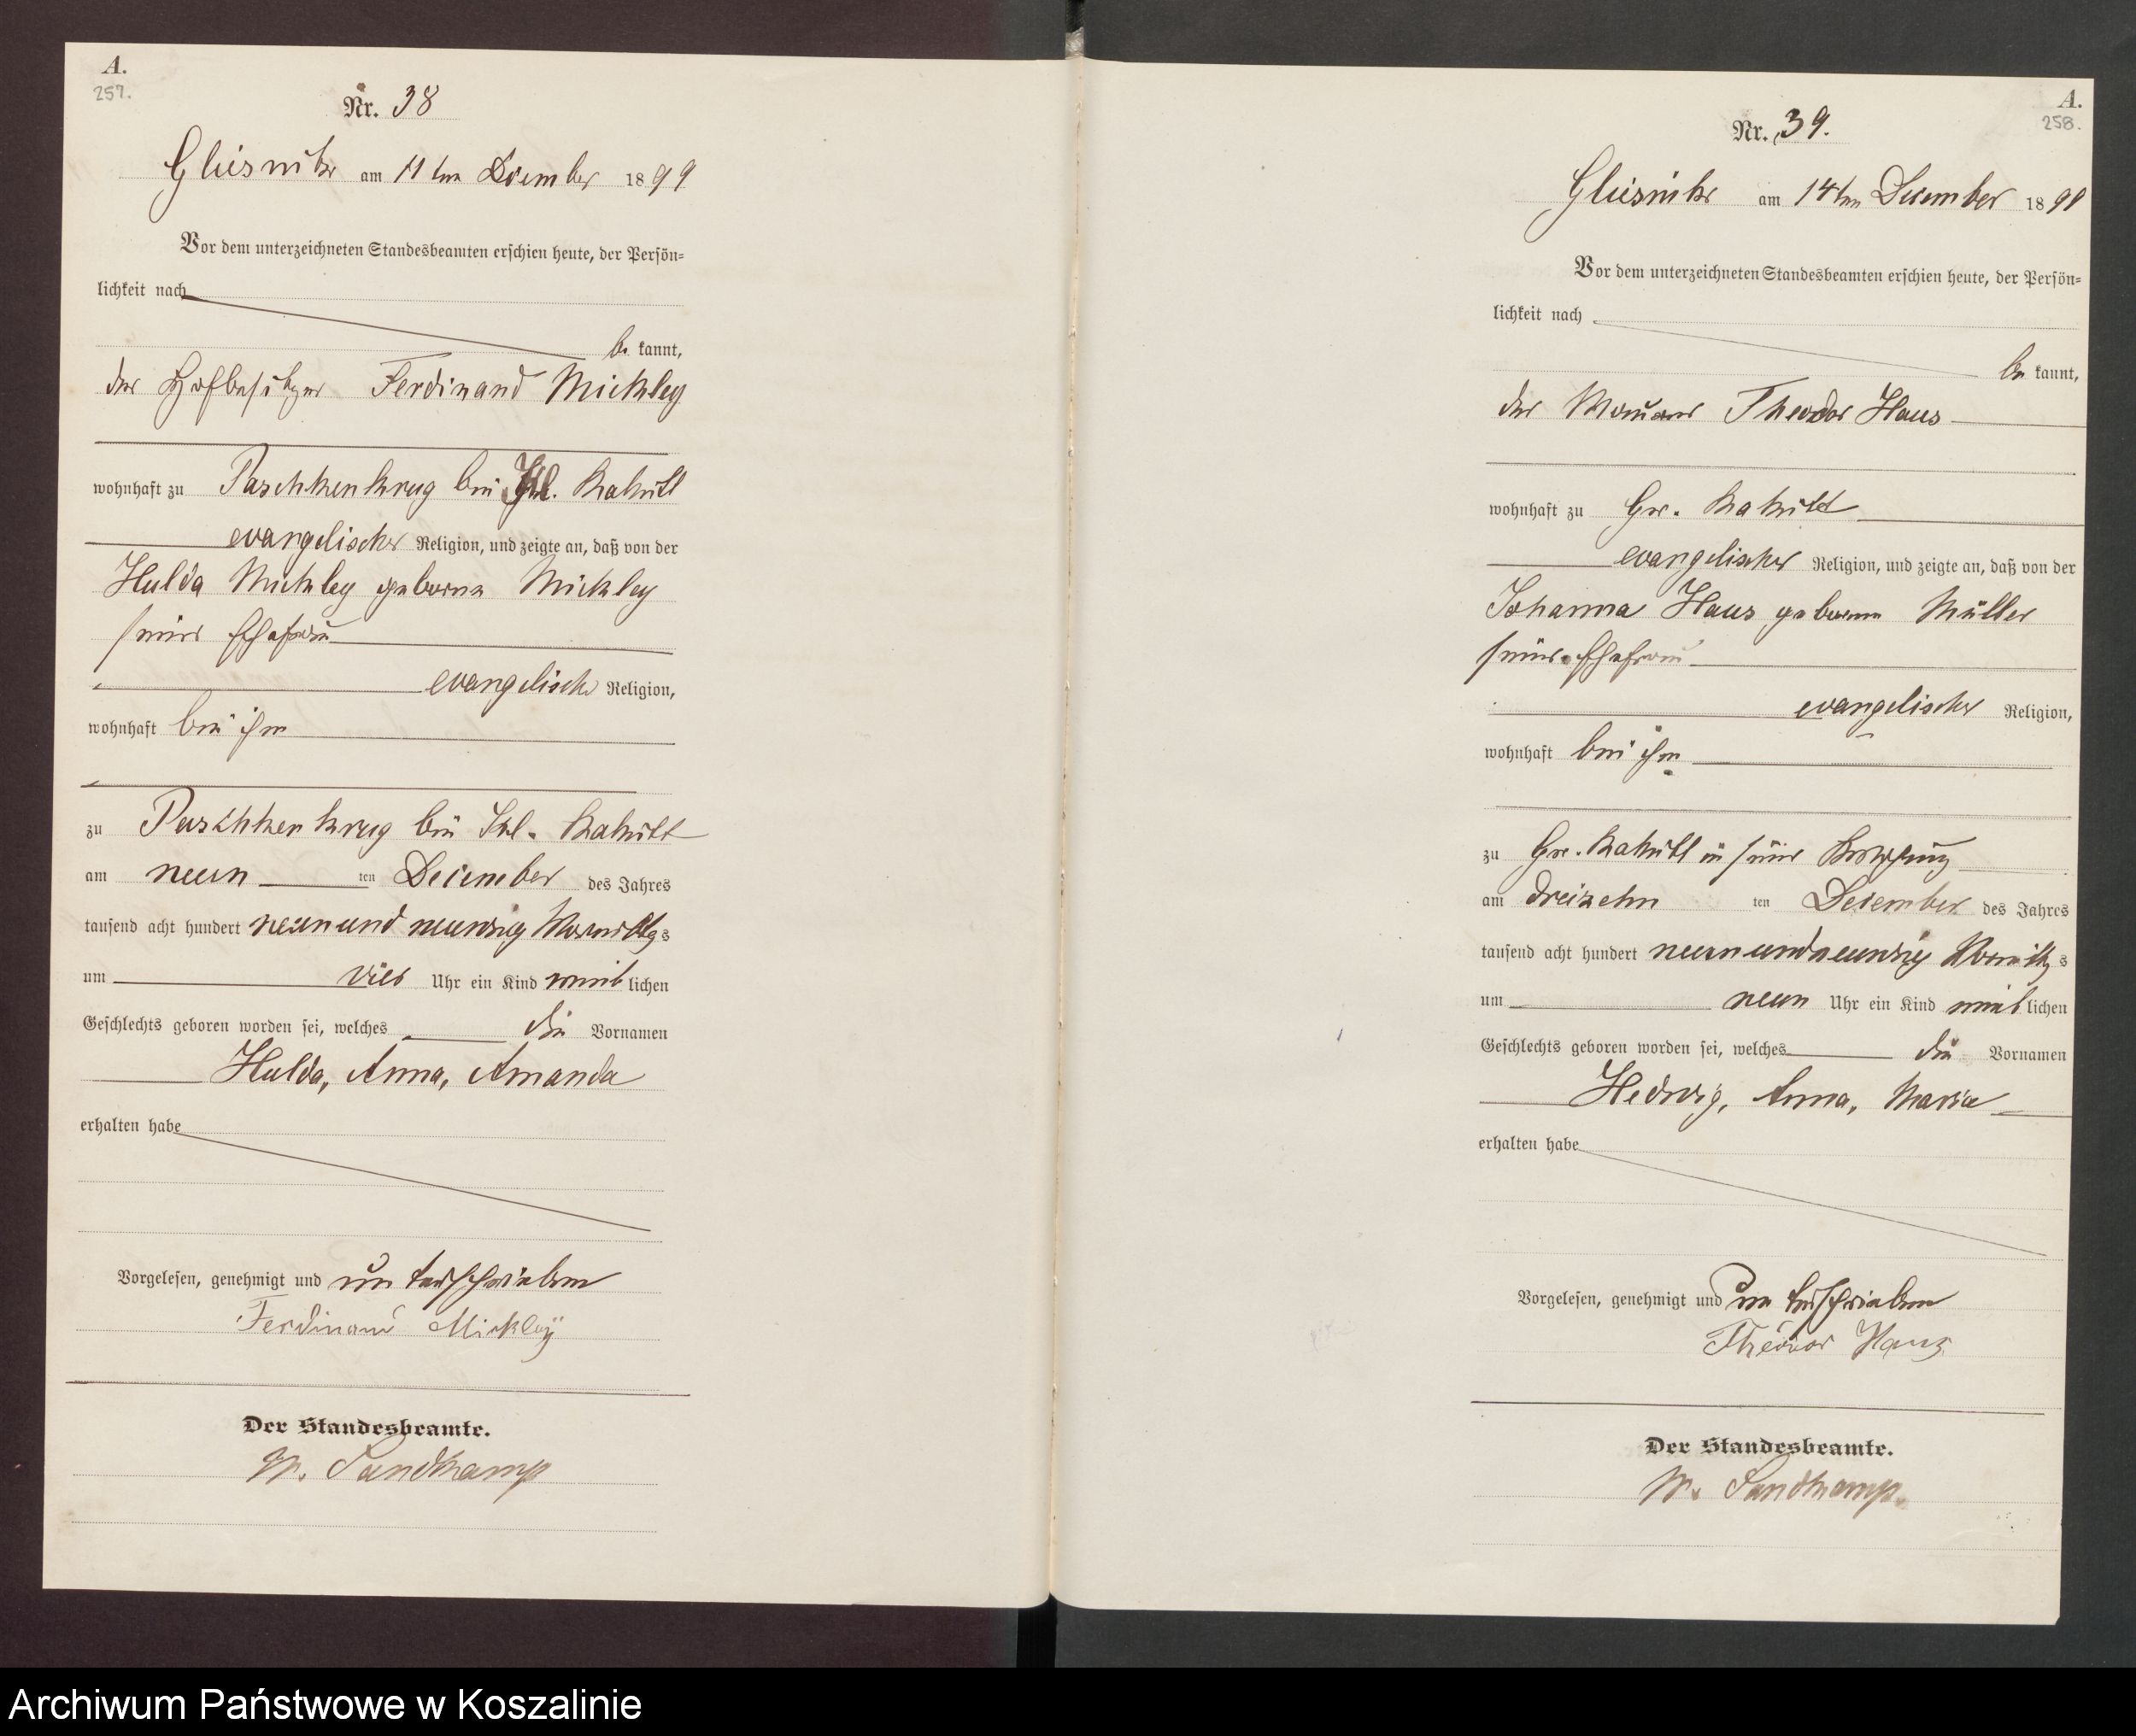 A.
257.
Nr. 38
Glüsnitz am 11ten December 1899
Vor dem unterzeichneten Standesbeamten erschien heute, der Persön=
lichkeit nach
be kannt,
der Hofbesitzer Ferdinand Mickley
wohnhaft zu Paschkenkrug bei Kl. Rakitt
evangelischer Religion, und zeigte an, daß von der
Hulda Mickley geborne Mickley
seiner Ehefrau
evangelische Religion,
wohnhaft bei ihm
zu Paschkenkrug bei Kl. Rakitt
am neun ten December des Jahres
tausend acht hundert neunundneunzig Vormittags
um vier Uhr ein Kind weiblichen
Geschlechts geboren worden sei, welches die Vornamen
Hulda, Anna, Amanda
erhalten habe
Vorgelesen, genehmigt und unterschrieben
Ferdinand Mickleÿ
Der Standesbeamte.
W. Sandkamp
A.
258.
Nr. 39.
Glüsnitz am 14ten December 1899
Vor dem unterzeichneten Standesbeamten erschien heute, der Persön=
lichkeit nach
be kannt,
der Maurer Theodor Haus
wohnhaft zu Gr. Rakitt
evangelischer Religion, und zeigte an, daß von der
Johanna Haus geborne Müller
seiner Ehefrau
evangelischer Religion,
wohnhaft bei ihm
zu Gr. Rakitt in seiner Wohnung
am dreizehn ten December des Jahres
tausend acht hundert neunundneunzig Vormittags
um neun Uhr ein Kind weiblichen
Geschlechts geboren worden sei, welches die Vornamen
Hedwig, Anna, Maria
erhalten habe
Vorgelesen, genehmigt und unterschrieben
Theodor Haus
Der Standesbeamte.
W. Sandkamp.
Archiwum Państwowe w Koszalinie